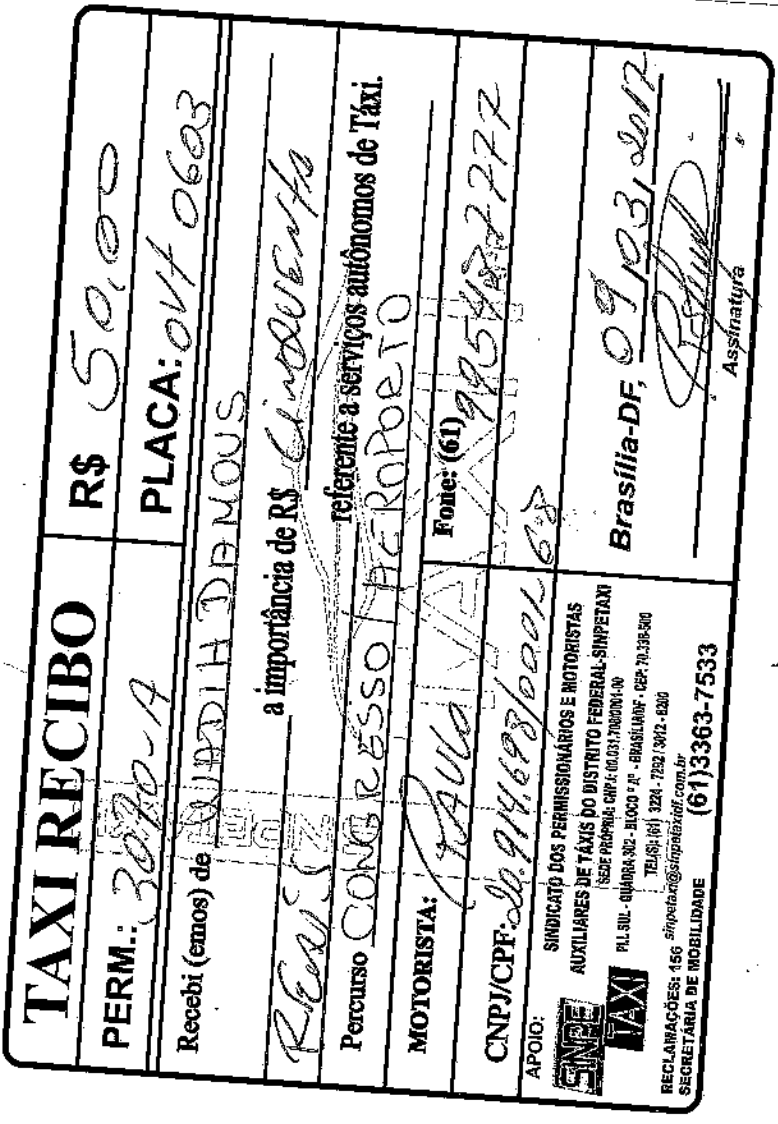 TAXI RECIBO
R$ 50,00
PERM.: 3070-A
PLACA: OVT 0603
Recebi (emos) de WADIH DAMOUS
a importância de R$ Cinquenta
REAIS
referente a serviços autônomos de Táxi.
Percurso CONGRESSO / AEROPORTO
MOTORISTA: PAULO
Fone: (61)
CNPJ/CPF: 20.914.698/0001-68
APOIO:
SINPE TAXI
SINDICATO DOS PERMISSIONÁRIOS E MOTORISTAS
AUXILIARES DE TÁXIS DO DISTRITO FEDERAL-SINPETAXI
SEDE PRÓPRIA: CNPJ: 00.031.708/0001-00
P.LL SUL - QUADRA 302 - BLOCO "A" - BRASÍLIA/DF - CEP: 70.338-500
TEL(S): (61) 3224-7292 / 3012-8200
RECLAMAÇÕES: 156 sinpetaxi@sinpetaxidf.com.br
SECRETÁRIA DE MOBILIDADE (61)3363-7533
Brasília-DF, 09/03/2017
Assinatura